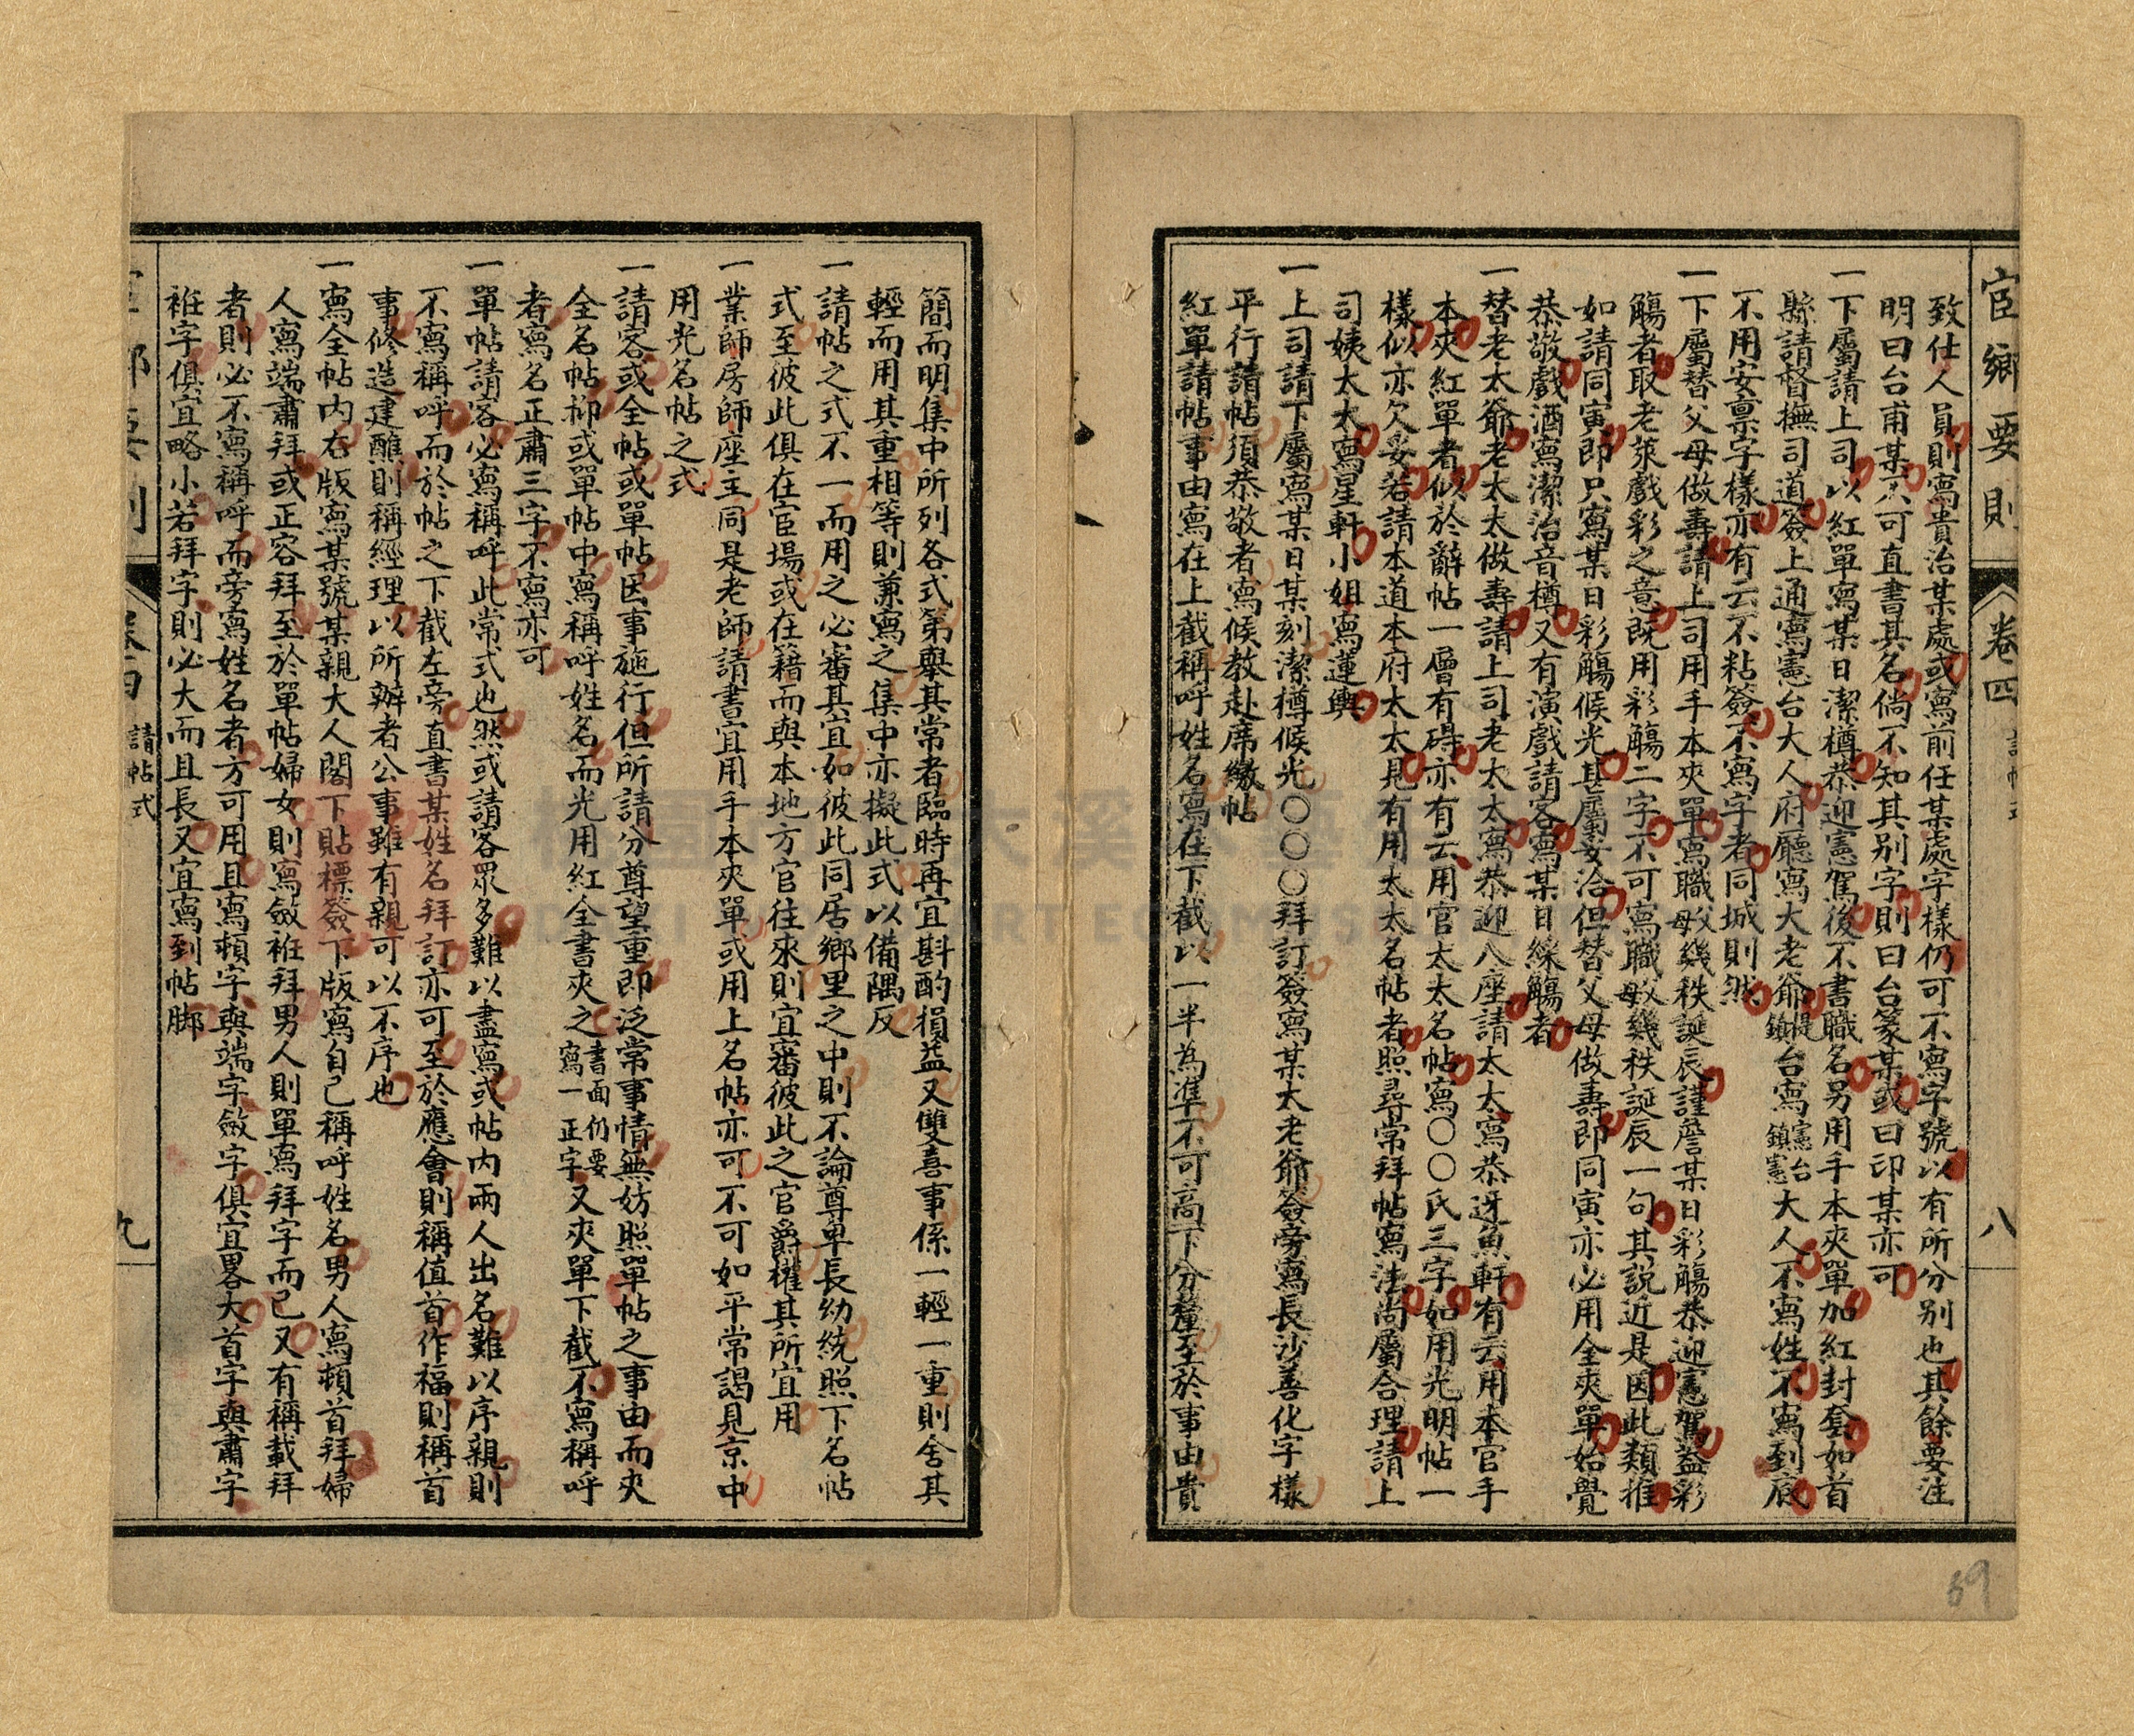 宦鄉要則
卷四
八
致仕人員則寫貴治某處或寫前任某處字樣仍可不寫字號以有所分別也其餘要注
明曰台甫某不可直書其名倘不知其別字則曰台篆某或曰印某亦可
一下屬請上司以紅單寫某日潔樽恭迎憲駕後不書職名另用手本夾單加紅封套如首
縣請督撫司道簽上通寫憲台大人府廳寫大老爺鎮提台寫鎮憲憲台大人不寫姓不寫到底
不用安稟字樣亦有云不粘簽不寫字者同城則然
一下屬替父母做壽請上司用手本夾單寫職母幾秩誕辰謹詹某日彩觴恭迎憲駕益彩
觴者取老萊戲彩之意既用彩觴二字不可寫職母幾秩誕辰一句其說近是因此類推
如請同寅即只寫某日彩觴候光甚屬妥洽但替父母做壽即同寅亦必用全夾單始覺
恭敬戲酒寫潔治音樽又有演戲請客寫某日綵觴者
一替老太爺老太太做壽請上司老太太寫恭迎八座請太太寫恭迓魚軒有云用本官手
本夾紅單者似於辭帖一層有碍亦有云用官太太名帖寫〇〇〇氏三字如用光明帖一
樣似亦欠妥若請本道本府太太見有用太太名帖者照尋常拜帖寫法尚屬合理請上
司姨太太寫星軒小姐寫蓮輿
一上司請下屬寫某日某刻潔樽候光〇〇〇拜訂簽寫某大老爺簽旁寫長沙善化字樣
平行請帖須恭敬者寫候教赴席繳帖
紅單請帖事由寫在上截稱呼姓名寫在下截以一半為準不可高下分釐至於事由貴
簡而明集中所列各式第舉其常者臨時再宜斟酌損益又雙喜事係一輕一重則舍其
輕而用其重相等則兼寫之集中亦擬此式以備隅反
一請帖之式不一而用之必審其宜如彼此同居鄉里之中則不論尊卑長幼統照下名帖
式至彼此俱在宦場或在籍而與本地方官往來則宜審彼此之官爵權其所宜用
一業師房師座主同是老師請書宜用手本夾單或用上名帖亦可不可如平常謁見京中
用光名帖之式
一請客或全帖或單帖因事施行但所請分尊望重即泛常事情無妨照單帖之事由而夾
全名帖抑或單帖中寫稱呼姓名而光用紅全書夾之書面仍要寫一正字又夾單下截不寫稱呼
者寫名正肅三字不寫亦可
一單帖請客必寫稱呼此常式也然或請客眾多難以盡寫或帖內兩人出名難以序親則
不寫稱呼而於帖之下截左旁直書某姓名拜訂亦可至於應會則稱值首作福則稱首
事修造建醮則稱經理以所辦者公事雖有親可以不序也
一寫全帖內右版寫某號某親大人閣下貼標簽下版寫自己稱呼姓名男人寫頓首拜婦
人寫端肅拜或正容拜至於單帖婦女則寫斂袵拜男人則單寫拜字而已又有稱載拜
者則必不寫稱呼而旁寫姓名者方可用且寫頓字與端字斂字俱宜畧大首字與肅字
袵字俱宜略小若拜字則必大而且長又宜寫到帖脚
卷四
請帖式
九
59